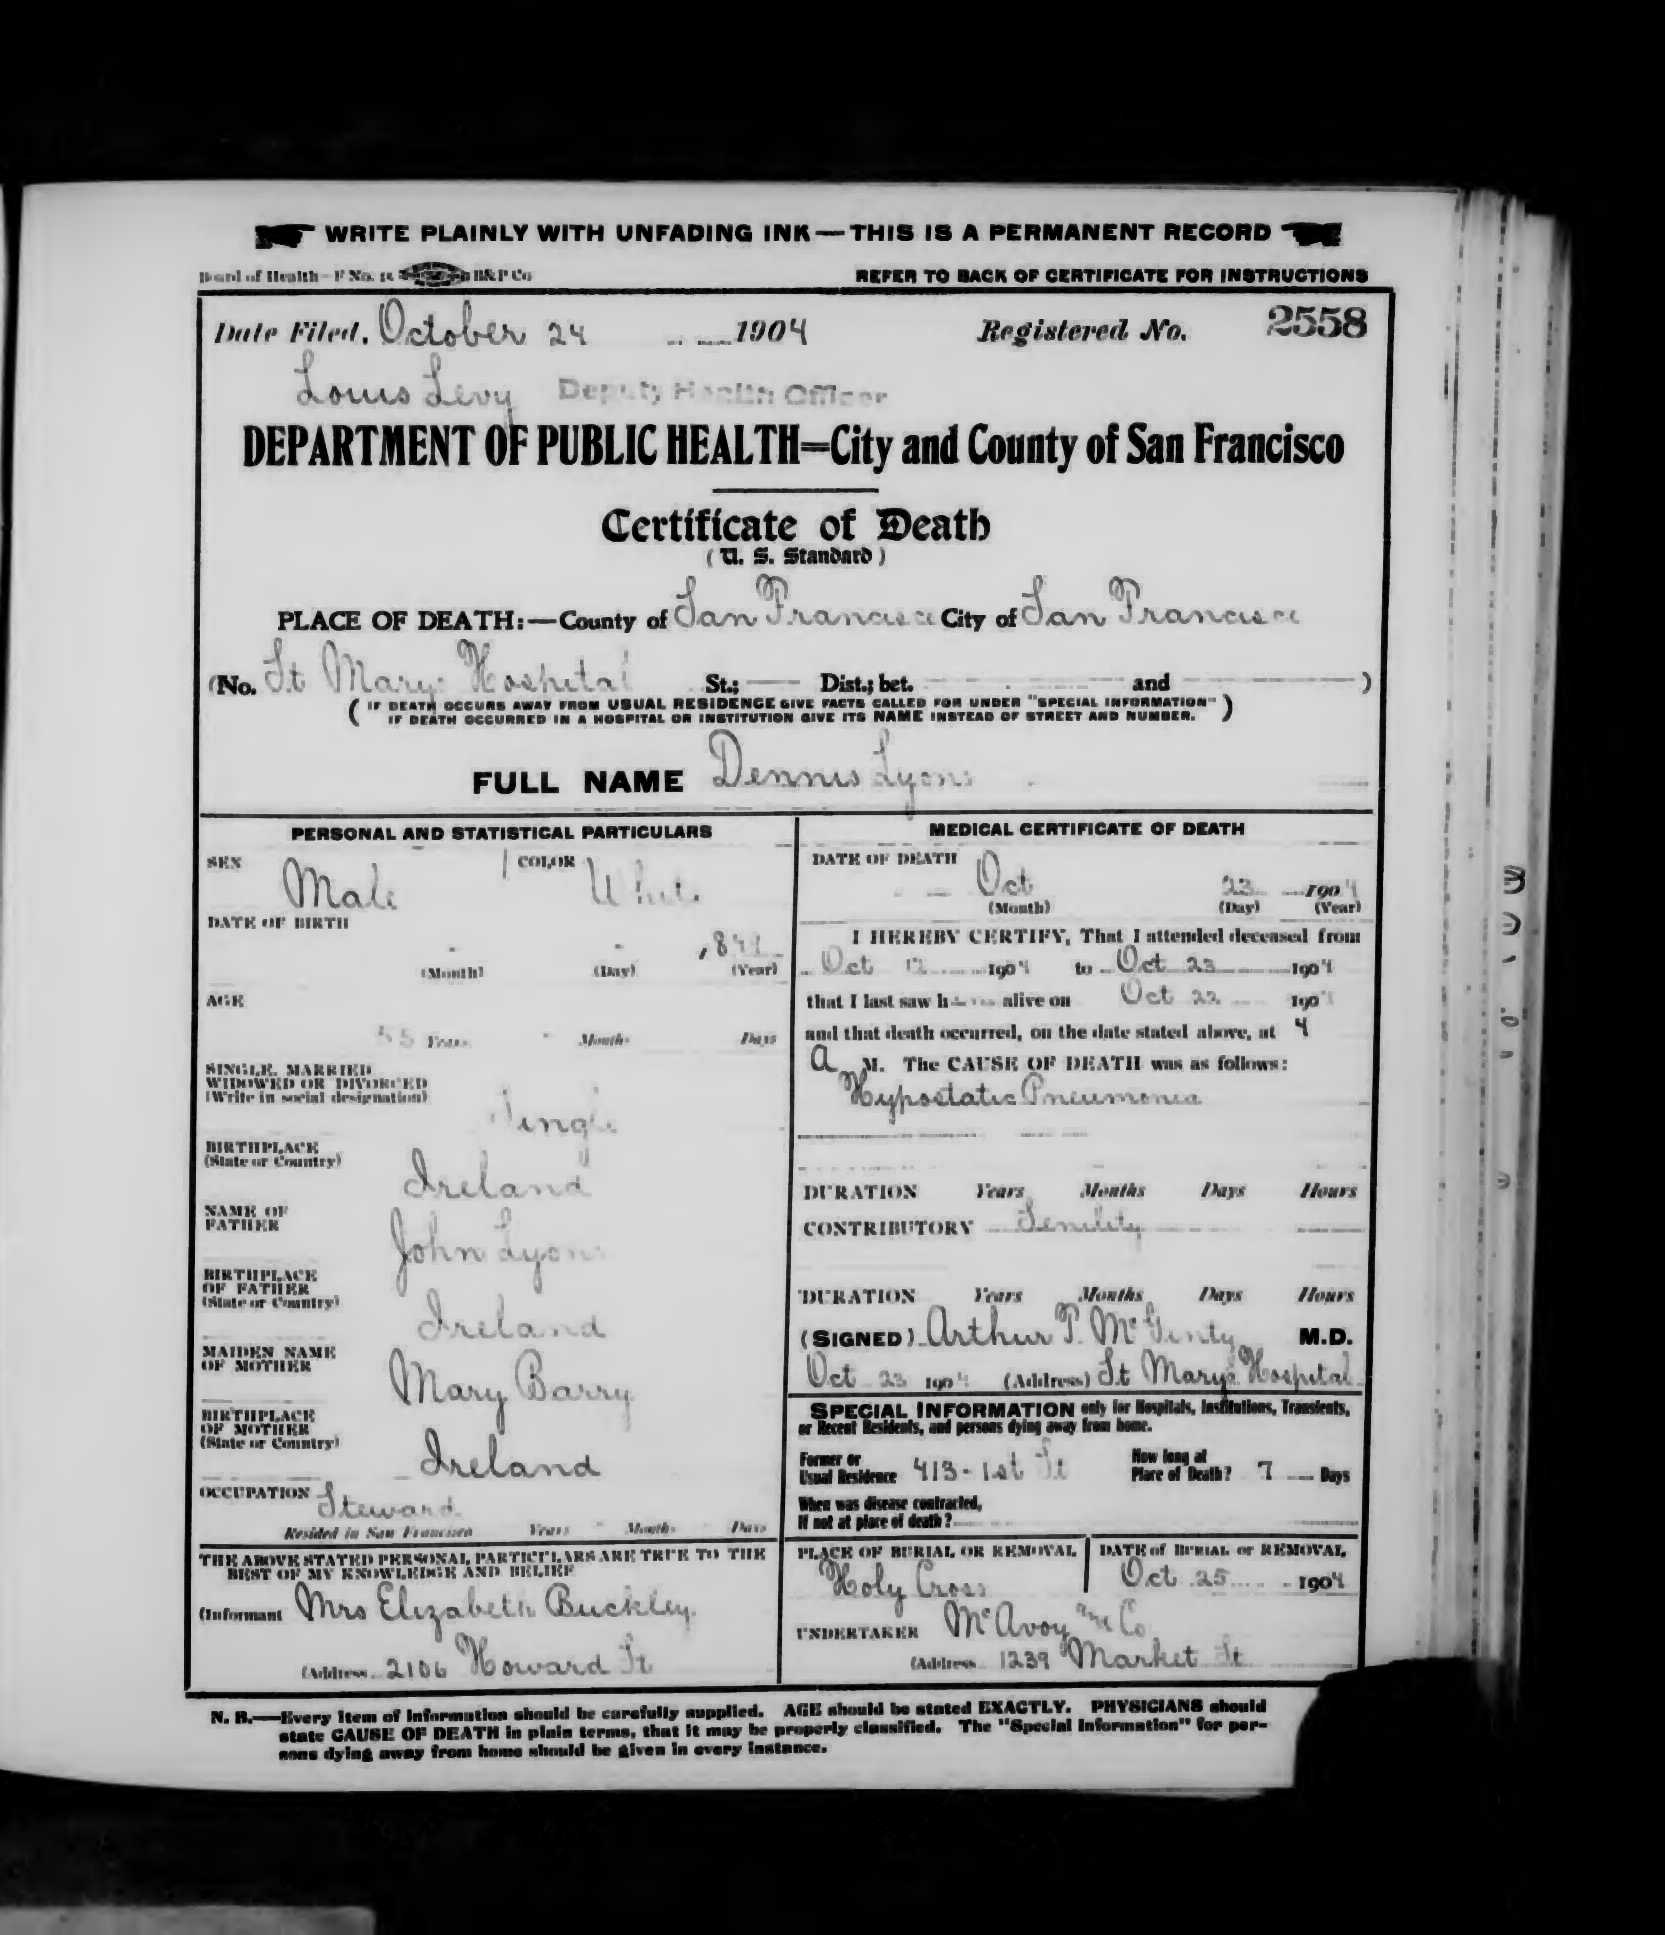 WRITE PLAINLY WITH UNFADING INK—THIS IS A PERMANENT RECORD
Board of Health—F No. 15 B&P Co
REFER TO BACK OF CERTIFICATE FOR INSTRUCTIONS
Date Filed, October 24 1904 Registered No. 2558
Louis Levy Deputy Health Officer
DEPARTMENT OF PUBLIC HEALTH=City and County of San Francisco
Certificate of Death
(U. S. Standard)
PLACE OF DEATH:—County of San Francisco City of San Francisco
(No. St Mary's Hospital St.; Dist.; bet. and )
(IF DEATH OCCURS AWAY FROM USUAL RESIDENCE GIVE FACTS CALLED FOR UNDER "SPECIAL INFORMATION"
IF DEATH OCCURRED IN A HOSPITAL OR INSTITUTION GIVE ITS NAME INSTEAD OF STREET AND NUMBER.)
FULL NAME Dennis Lyons
PERSONAL AND STATISTICAL PARTICULARS
SEX Male COLOR White
DATE OF BIRTH
(Month) (Day) (Year)
AGE
Years Months Days
SINGLE, MARRIED
WIDOWED OR DIVORCED
(Write in social designation)
Single
BIRTHPLACE
(State or Country)
Ireland
NAME OF
FATHER
John Lyons
BIRTHPLACE
OF FATHER
(State or Country)
Ireland
MAIDEN NAME
OF MOTHER
Mary Barry
BIRTHPLACE
OF MOTHER
(State or Country)
Ireland
OCCUPATION Steward
Resided in San Francisco Years Months Days
THE ABOVE STATED PERSONAL PARTICULARS ARE TRUE TO THE
BEST OF MY KNOWLEDGE AND BELIEF
(Informant Mrs Elizabeth Buckley
(Address 2106 Howard St
MEDICAL CERTIFICATE OF DEATH
DATE OF DEATH
Oct 23 1904
(Month) (Day) (Year)
I HEREBY CERTIFY, That I attended deceased from
Oct 1904 to Oct 23 1904
that I last saw h alive on Oct 22 190
and that death occurred, on the date stated above, at 4
A M. The CAUSE OF DEATH was as follows:
Hypostatic Pneumonia
DURATION Years Months Days Hours
CONTRIBUTORY Senility
DURATION Years Months Days Hours
(SIGNED) Arthur P. McGinty M.D.
Oct 23 1904 (Address) St Mary's Hospital
SPECIAL INFORMATION only for Hospitals, Institutions, Transients,
or Recent Residents, and persons dying away from home.
Former or
Usual Residence 413 - 1st St
How long at
Place of Death? 7 Days
When was disease contracted,
If not at place of death?
PLACE OF BURIAL OR REMOVAL
Holy Cross
DATE of BURIAL or REMOVAL
Oct 25 1904
UNDERTAKER McAvoy and Co
(Address 1239 Market St
N. B.—Every item of information should be carefully supplied. AGE should be stated EXACTLY. PHYSICIANS should
state CAUSE OF DEATH in plain terms, that it may be properly classified. The "Special Information" for per-
sons dying away from home should be given in every instance.